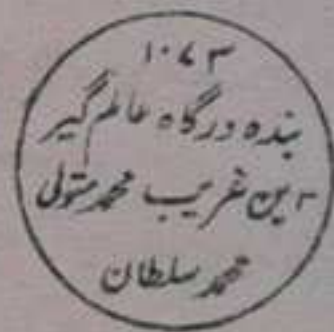 ۱۰۷۳
بنده درگاه عالم گیر
این غریب محمد متولی
محمد سلطان